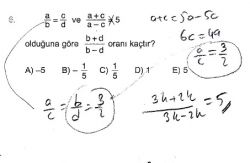 6. a/b = c/d ve (a+c)/(a-c) = 5
olduğuna göre (b+d)/(b-d) oranı kaçtır?
A) –5 B) – 1/5 C) 1/5 D) 1 E) 5
a+c = 5a-5c
6c = 4a
a/c = 3/2
a/c = b/d = 3/2
(3k+2k)/(3k-2k) = 5